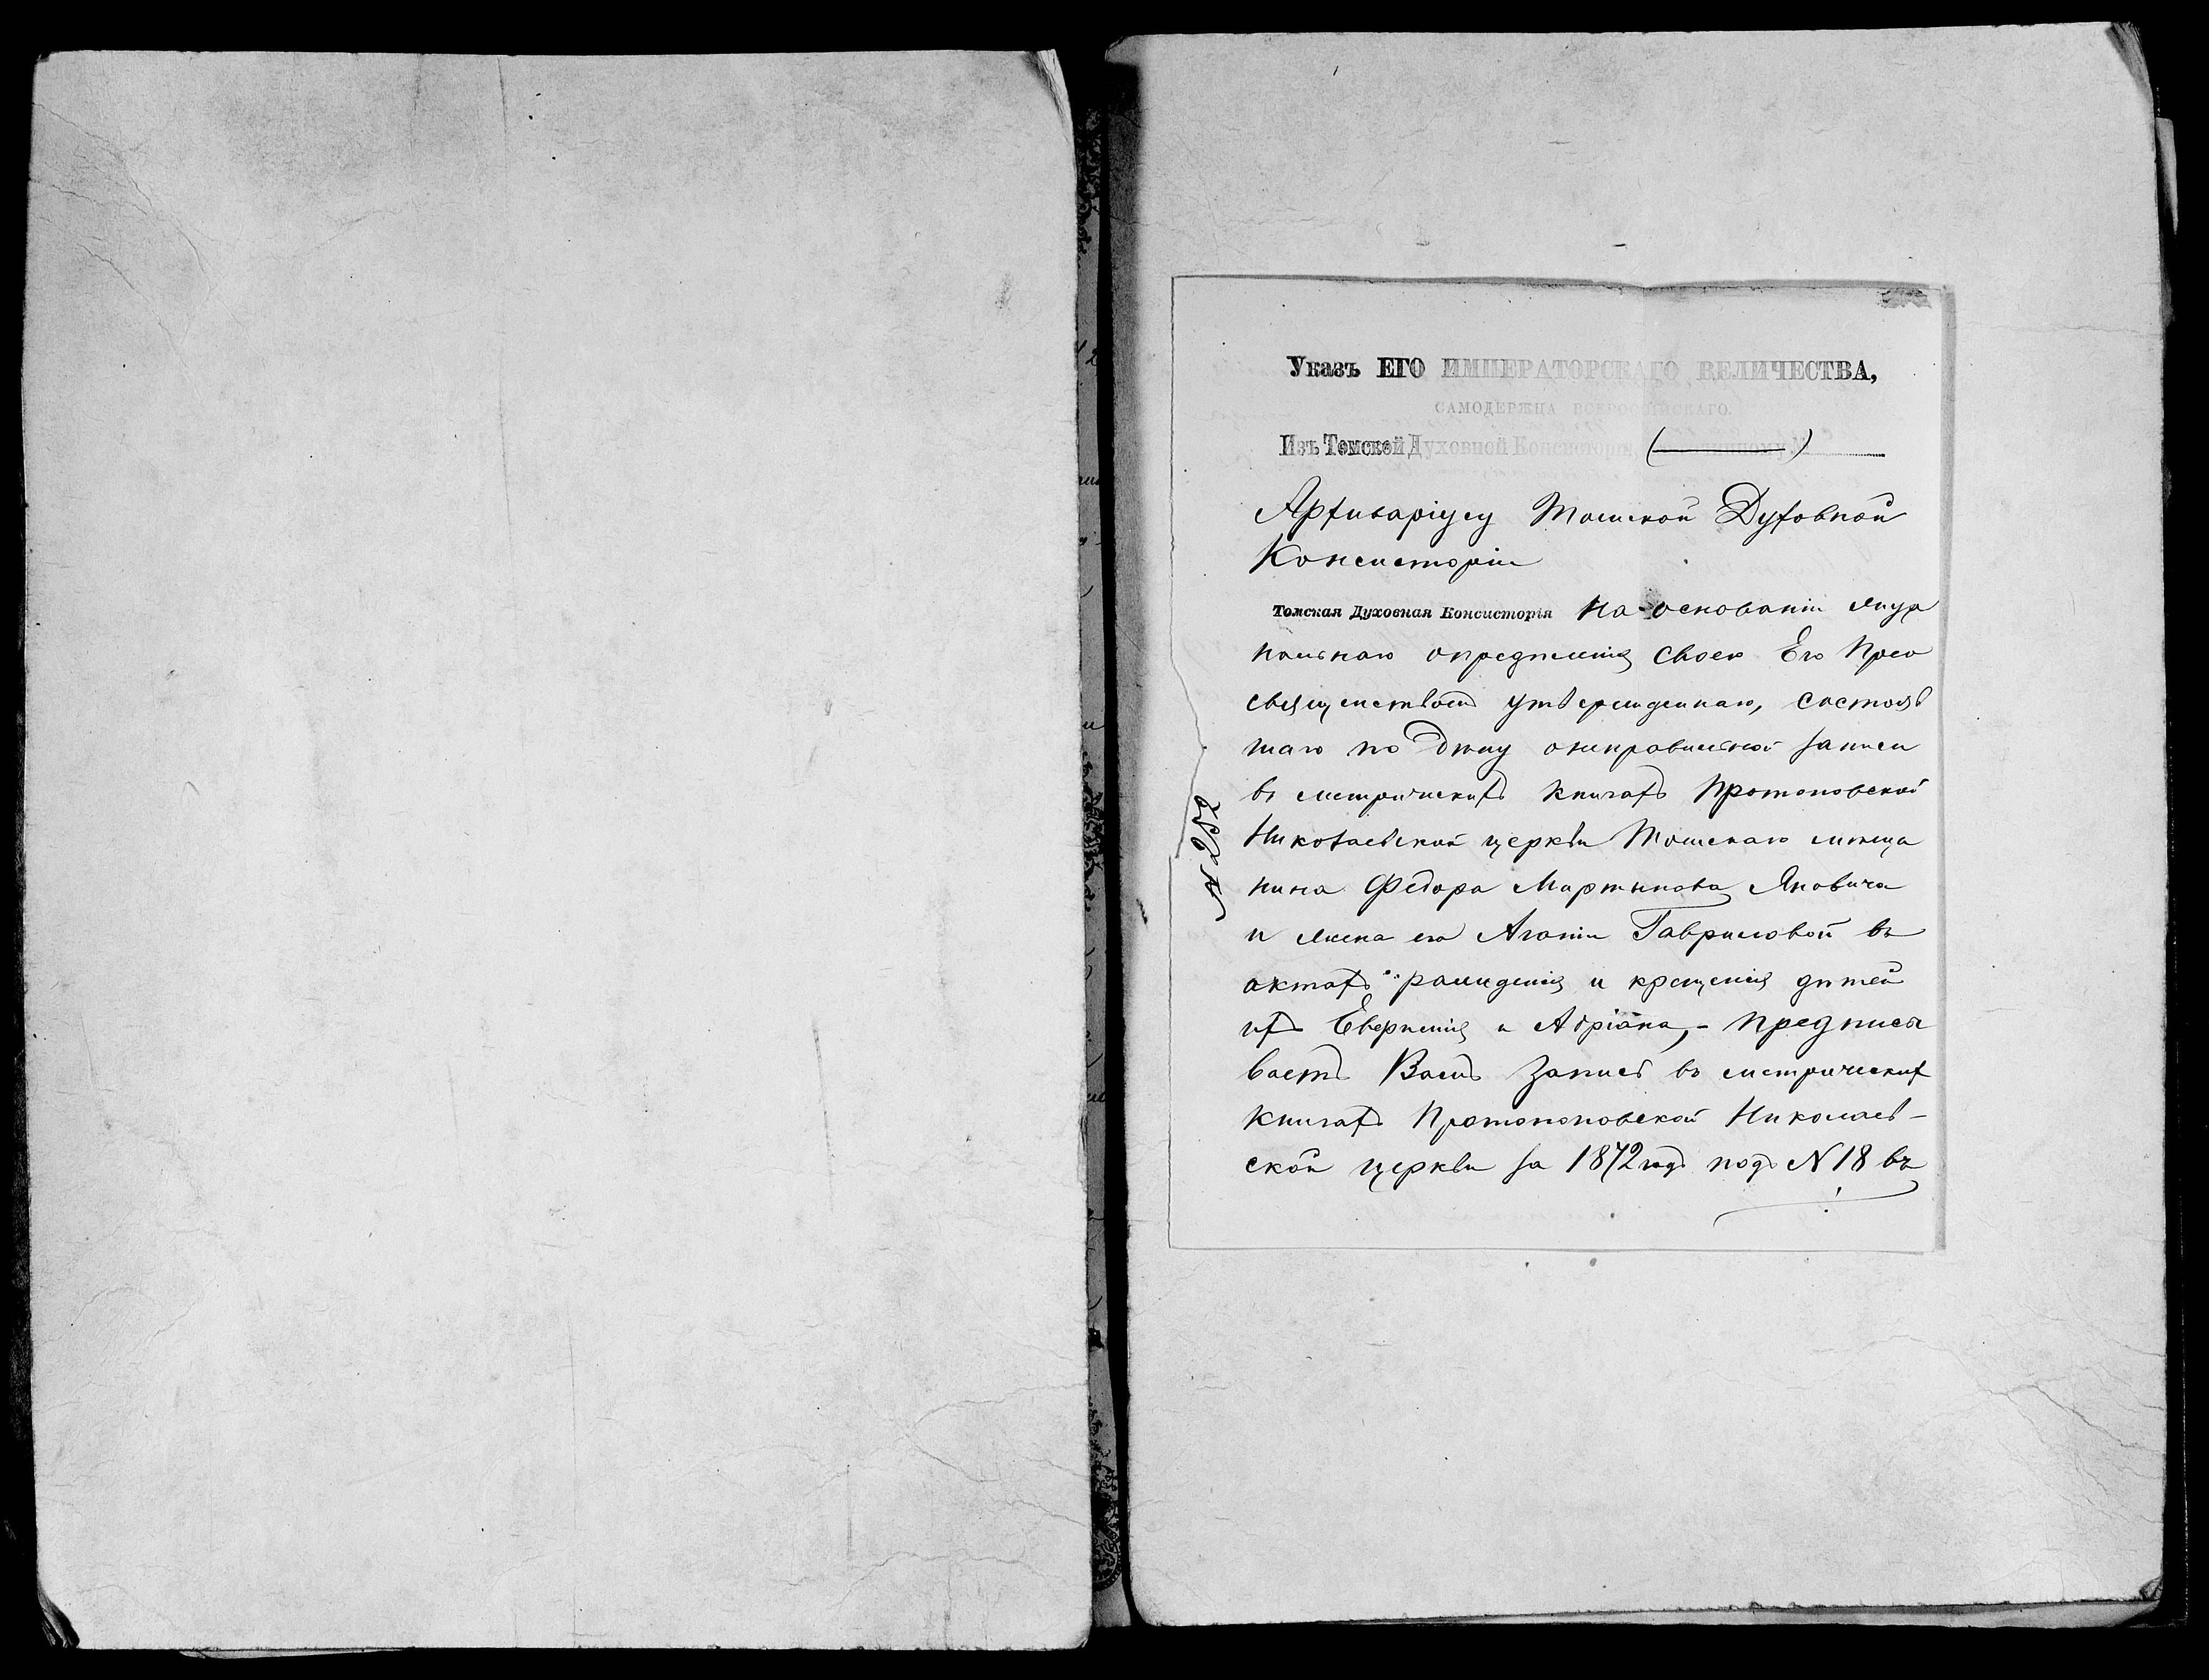 Указъ ЕГО ИМПЕРАТОРСКАГО ВЕЛИЧЕСТВА,
САМОДЕРЖЦА ВСЕРОССІЙСКАГО.
Изъ Томской Духовной Консисторіи,
Архиваріусу Томской Духовной
Консисторіи
Томская Духовная Консисторія На основаніи жур
нальнаго опредѣленія своего Его Прео
священствомъ утвержденнаго, состояв
шаго по дѣлу о неправильной записи
въ метрическихъ книгахъ Протопоповской
Николаевской церкви Томскаго мѣща
нина Федора Мартынова Яновича
и жена его Агапіи Гавриловой въ
актахъ рожденія и крещенія дѣтей
ихъ и Адріана, - предписы
ваетъ Вамъ Запись въ метрическихъ
книгахъ Протопоповской Николаев-
ской церкви за 1872 годъ подъ N 18 въ
№ 252